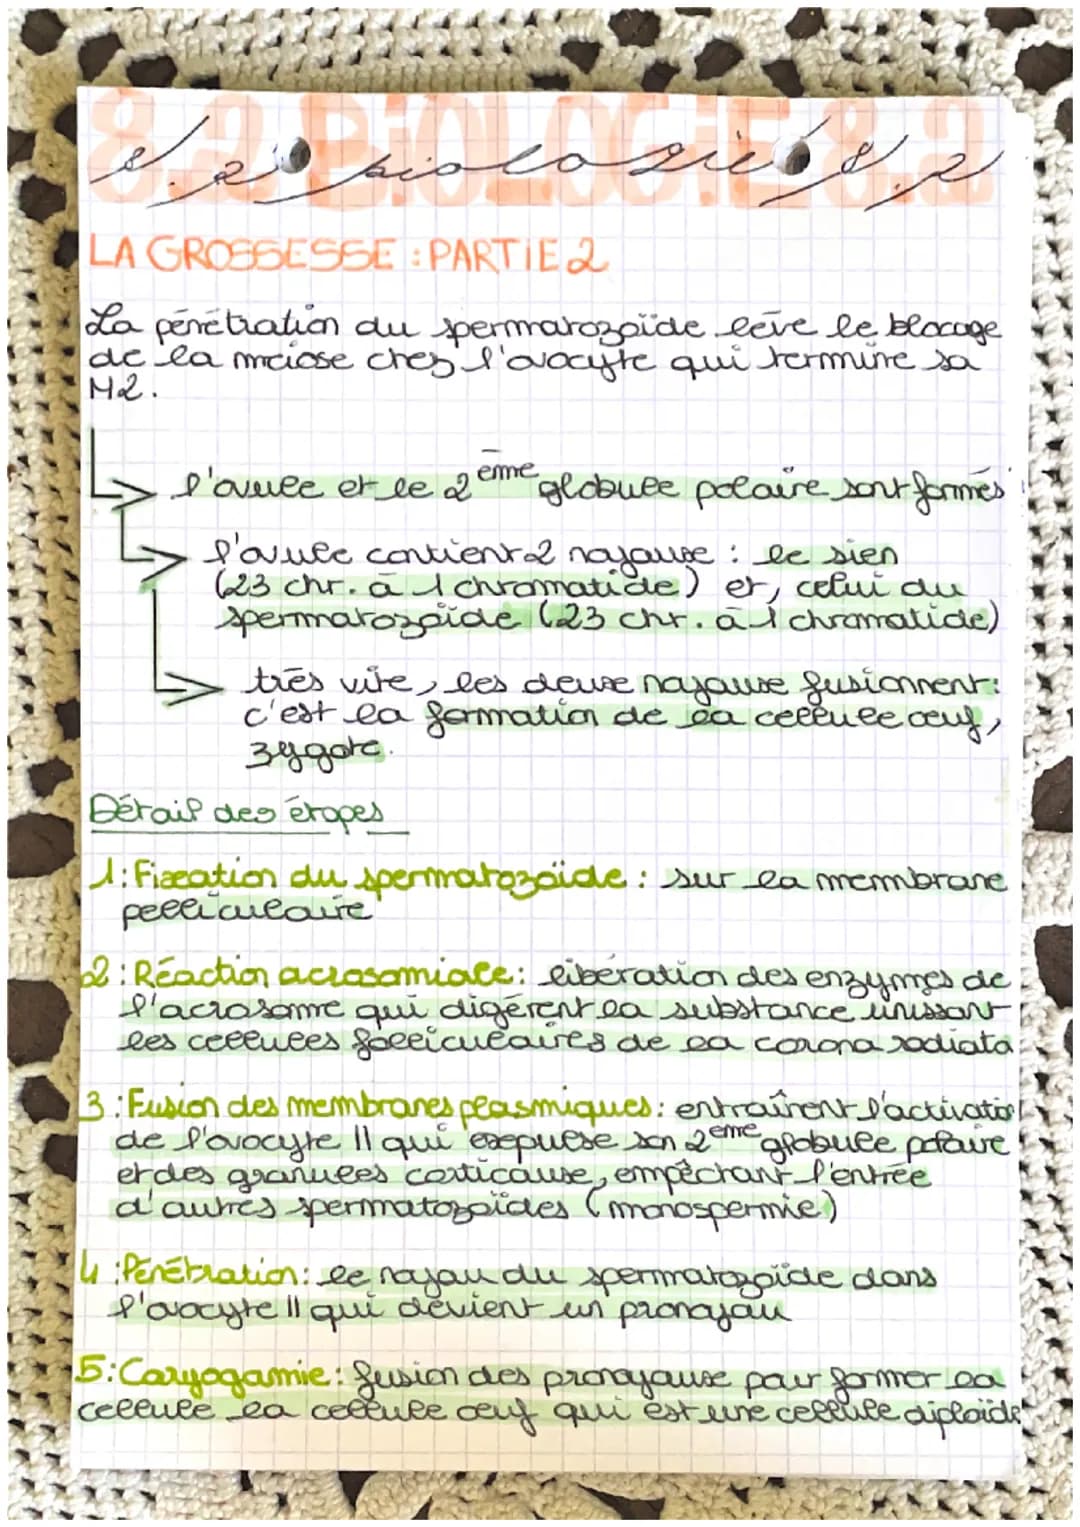 8.2 BIOLOGIE 8.2
8.2 biologie 8.2
LA GROSSESSE : PARTIE 2
La pénétration du spermatozoïde lève le blocage
de la méiose chez l'ovocyte qui termine sa
M2.
l'ovule et le 2ème globule polaire sont formés
l'ovule contient 2 noyaux : le sien
(23 chr. à 1 chromatide) et, celui du
spermatozoïde (23 chr. à 1 chromatide)
très vite, les deux noyaux fusionnent :
c'est la formation de la cellule œuf,
zygote.
Détail des étapes
1 : Fixation du spermatozoïde : sur la membrane
pelliculaire
2 : Réaction acrosomiale : libération des enzymes de
l'acrosome qui digèrent la substance unissant
les cellules folliculaires de la corona radiata
3 : Fusion des membranes plasmiques : entraînent l'activatio
de l'ovocyte II qui expulse son 2ème globule polaire
et des granules corticaux, empêchant l'entrée
d'autres spermatozoïdes (monospermie)
4 : Pénétration : le noyau du spermatozoïde dans
l'ovocyte II qui devient un pronoyau
5 : Caryogamie : fusion des pronoyaux pour former la
cellule la cellule œuf qui est une cellule diploïde